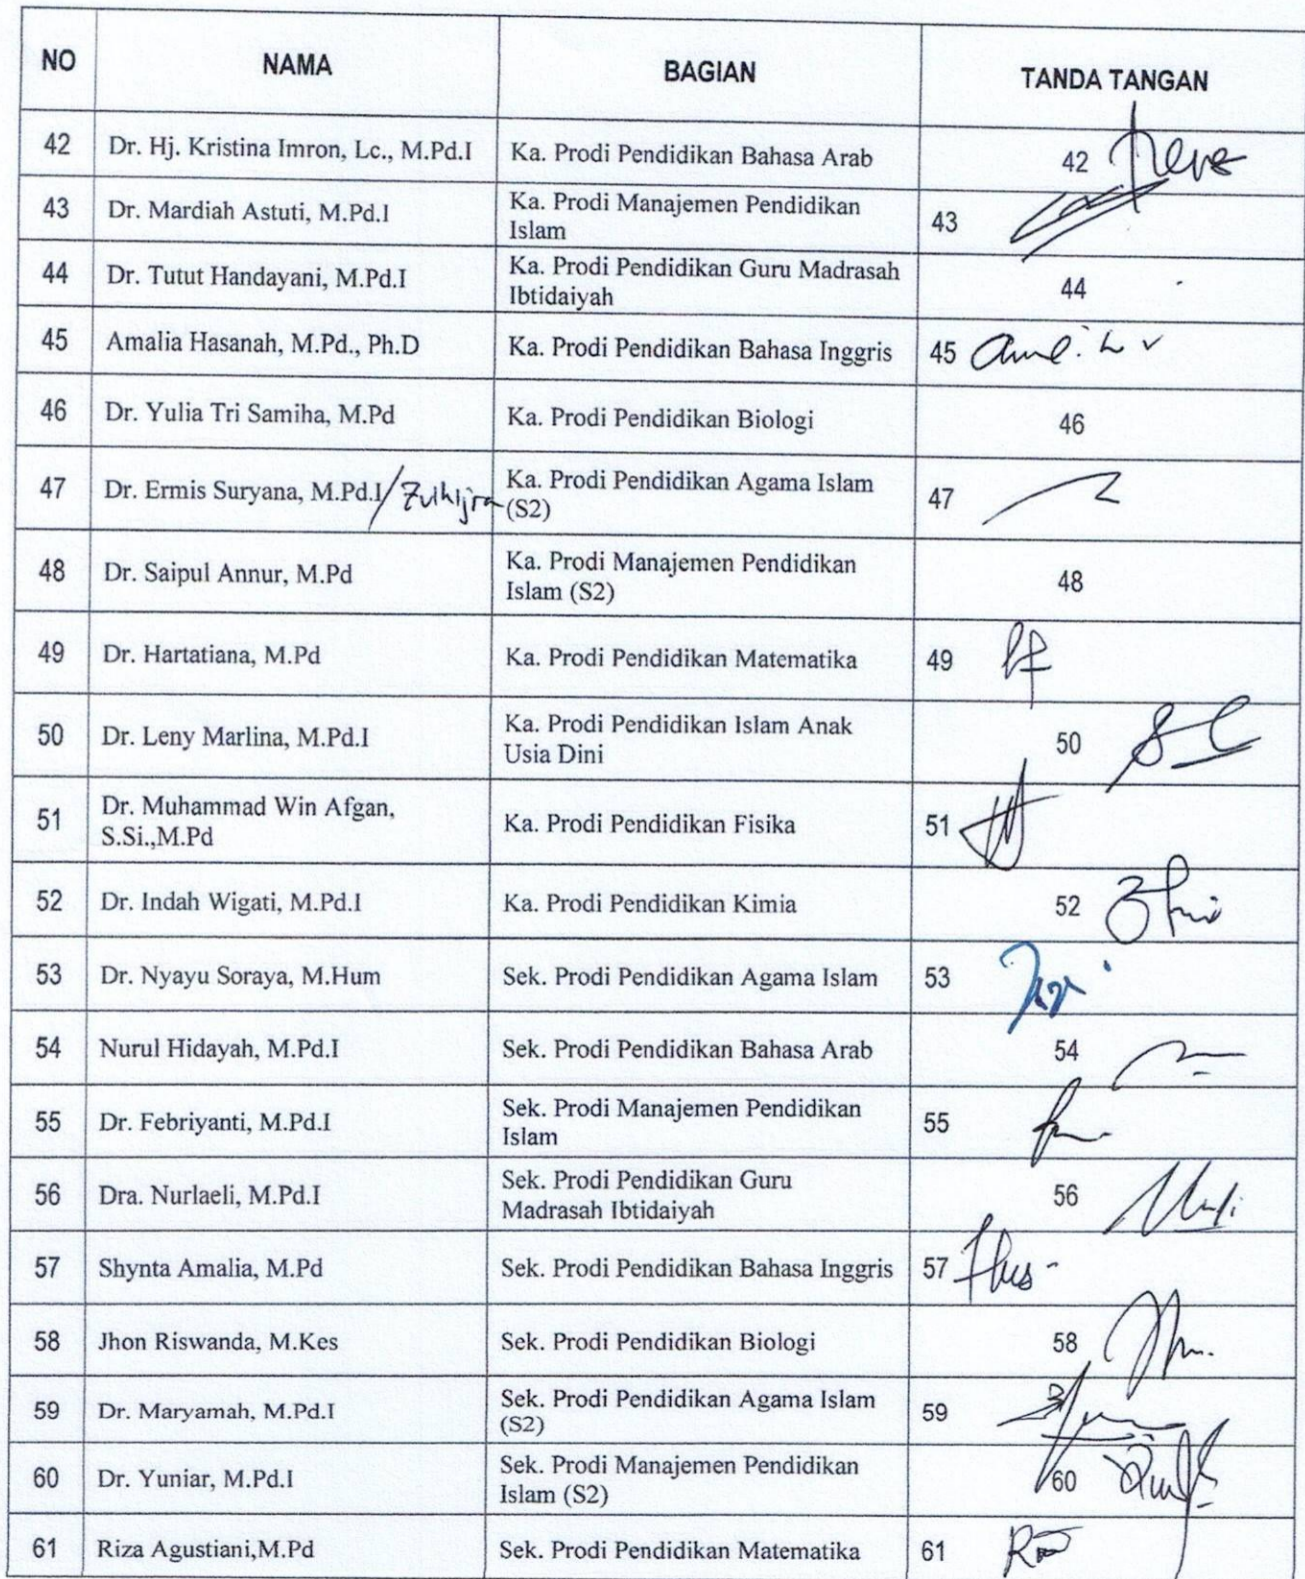 NO NAMA BAGIAN TANDA TANGAN
42 Dr. Hj. Kristina Imron, Lc., M.Pd.I Ka. Prodi Pendidikan Bahasa Arab 42
43 Dr. Mardiah Astuti, M.Pd.I Ka. Prodi Manajemen Pendidikan
Islam 43
44 Dr. Tutut Handayani, M.Pd.I Ka. Prodi Pendidikan Guru Madrasah
Ibtidaiyah 44
45 Amalia Hasanah, M.Pd., Ph.D Ka. Prodi Pendidikan Bahasa Inggris 45
46 Dr. Yulia Tri Samiha, M.Pd Ka. Prodi Pendidikan Biologi 46
47 Dr. Ermis Suryana, M.Pd.I/Zulhijra Ka. Prodi Pendidikan Agama Islam
(S2) 47
48 Dr. Saipul Annur, M.Pd Ka. Prodi Manajemen Pendidikan
Islam (S2) 48
49 Dr. Hartatiana, M.Pd Ka. Prodi Pendidikan Matematika 49
50 Dr. Leny Marlina, M.Pd.I Ka. Prodi Pendidikan Islam Anak
Usia Dini 50
51 Dr. Muhammad Win Afgan,
S.Si.,M.Pd Ka. Prodi Pendidikan Fisika 51
52 Dr. Indah Wigati, M.Pd.I Ka. Prodi Pendidikan Kimia 52
53 Dr. Nyayu Soraya, M.Hum Sek. Prodi Pendidikan Agama Islam 53
54 Nurul Hidayah, M.Pd.I Sek. Prodi Pendidikan Bahasa Arab 54
55 Dr. Febriyanti, M.Pd.I Sek. Prodi Manajemen Pendidikan
Islam 55
56 Dra. Nurlaeli, M.Pd.I Sek. Prodi Pendidikan Guru
Madrasah Ibtidaiyah 56
57 Shynta Amalia, M.Pd Sek. Prodi Pendidikan Bahasa Inggris 57
58 Jhon Riswanda, M.Kes Sek. Prodi Pendidikan Biologi 58
59 Dr. Maryamah, M.Pd.I Sek. Prodi Pendidikan Agama Islam
(S2) 59
60 Dr. Yuniar, M.Pd.I Sek. Prodi Manajemen Pendidikan
Islam (S2) 60
61 Riza Agustiani,M.Pd Sek. Prodi Pendidikan Matematika 61